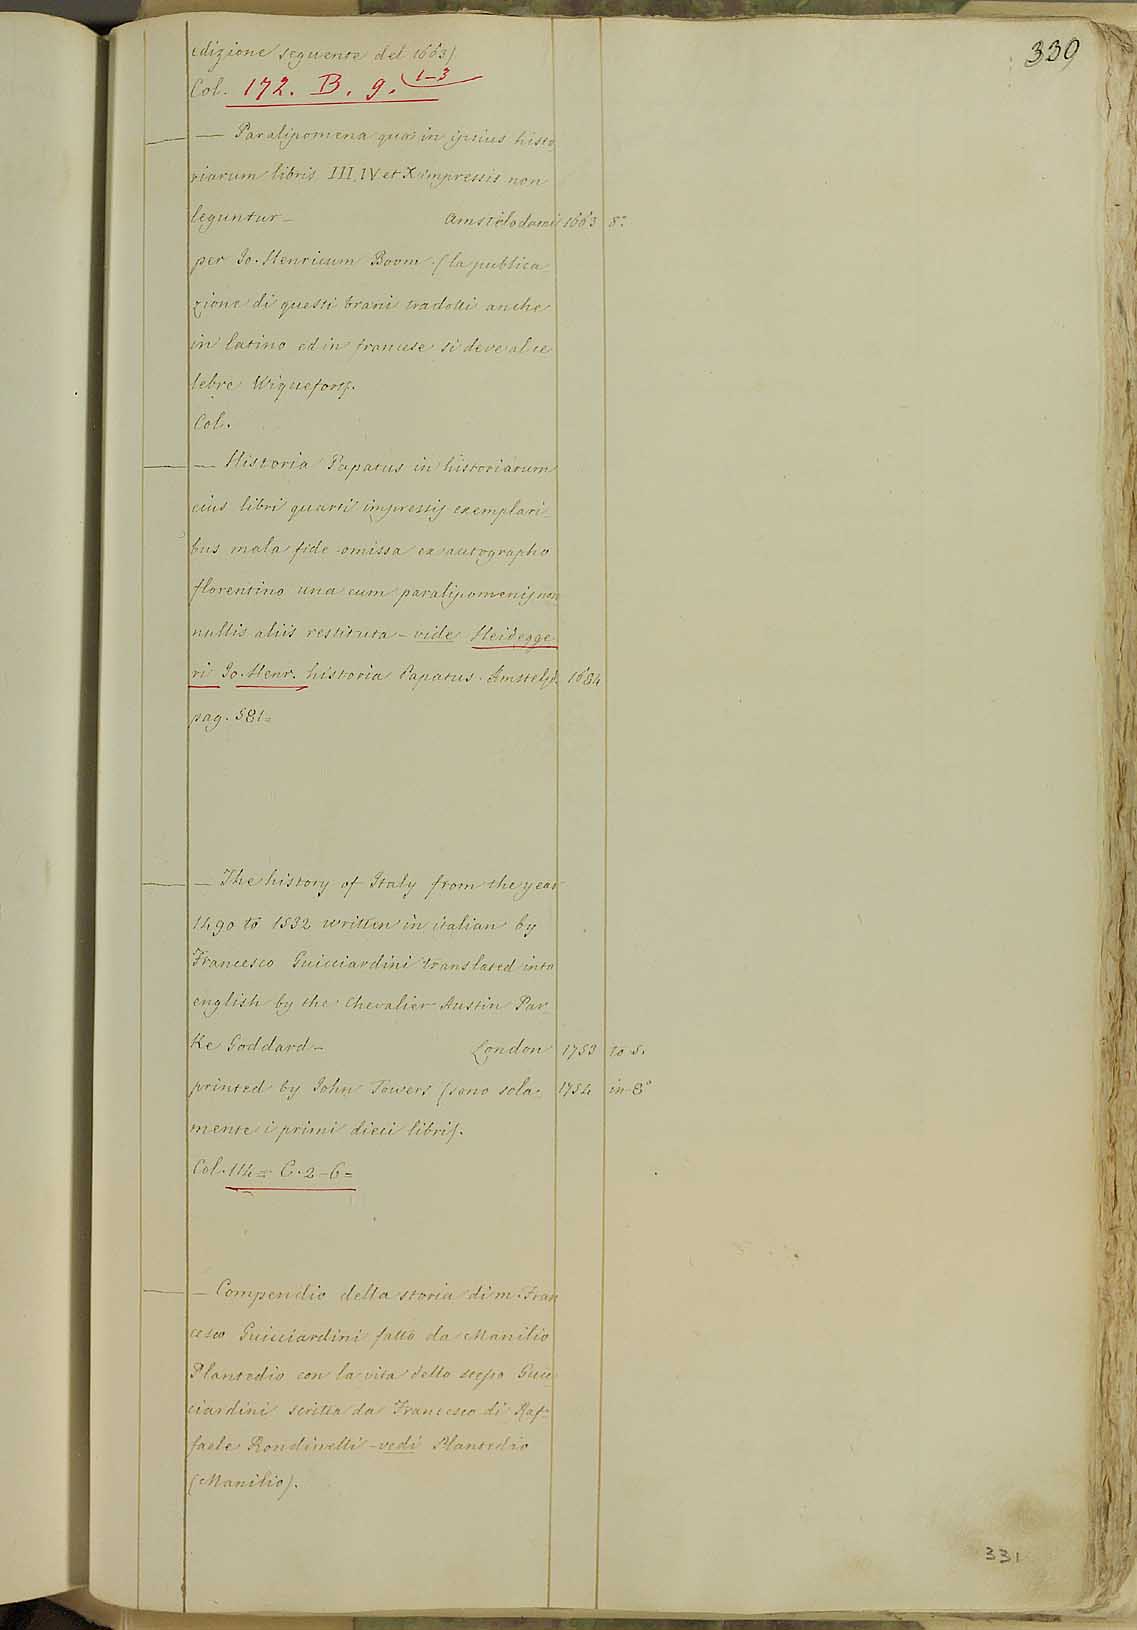 339
edizione seguente del 1663)
Col. 172. B. 9. 1-3
— Paralipomena quæ in ipsius histo
riarum libris III, IV et X impressis non
leguntur — Amstelodami 1663 8.°
per Jo. Henricum Boom (la publica
zione di questi brani tradotti anche
in latino ed in francese si deve al ce
lebre Wiquefort).
Col.
— Historia Papatus in historiarum
eius libri quarti impressis exemplari-
bus mala fide omissa ex autographo
florentino una cum paralipomenis non
nullis aliis restituta — vide Heidegge
ri Jo. Henr. historia Papatus. Amstelod. 1684
pag. 581=
— The history of Italy from the year
1490 to 1532 written in italian by
Francesco Guicciardini translated into
english by the Chevalier Austin Par
ke Goddard — London 1753 to 5.
printed by John Towers (sono sola- 1754 in 8°
mente i primi dieci libri).
Col. 114 = C. 2-6=
— Compendio della storia di m. Fran
cesco Guicciardini fatto da Manilio
Plantedio con la vita dello stesso Guic
ciardini scritta da Francesco di Raf-
faele Rondinelli — vedi Plantedio
(Manilio).
331